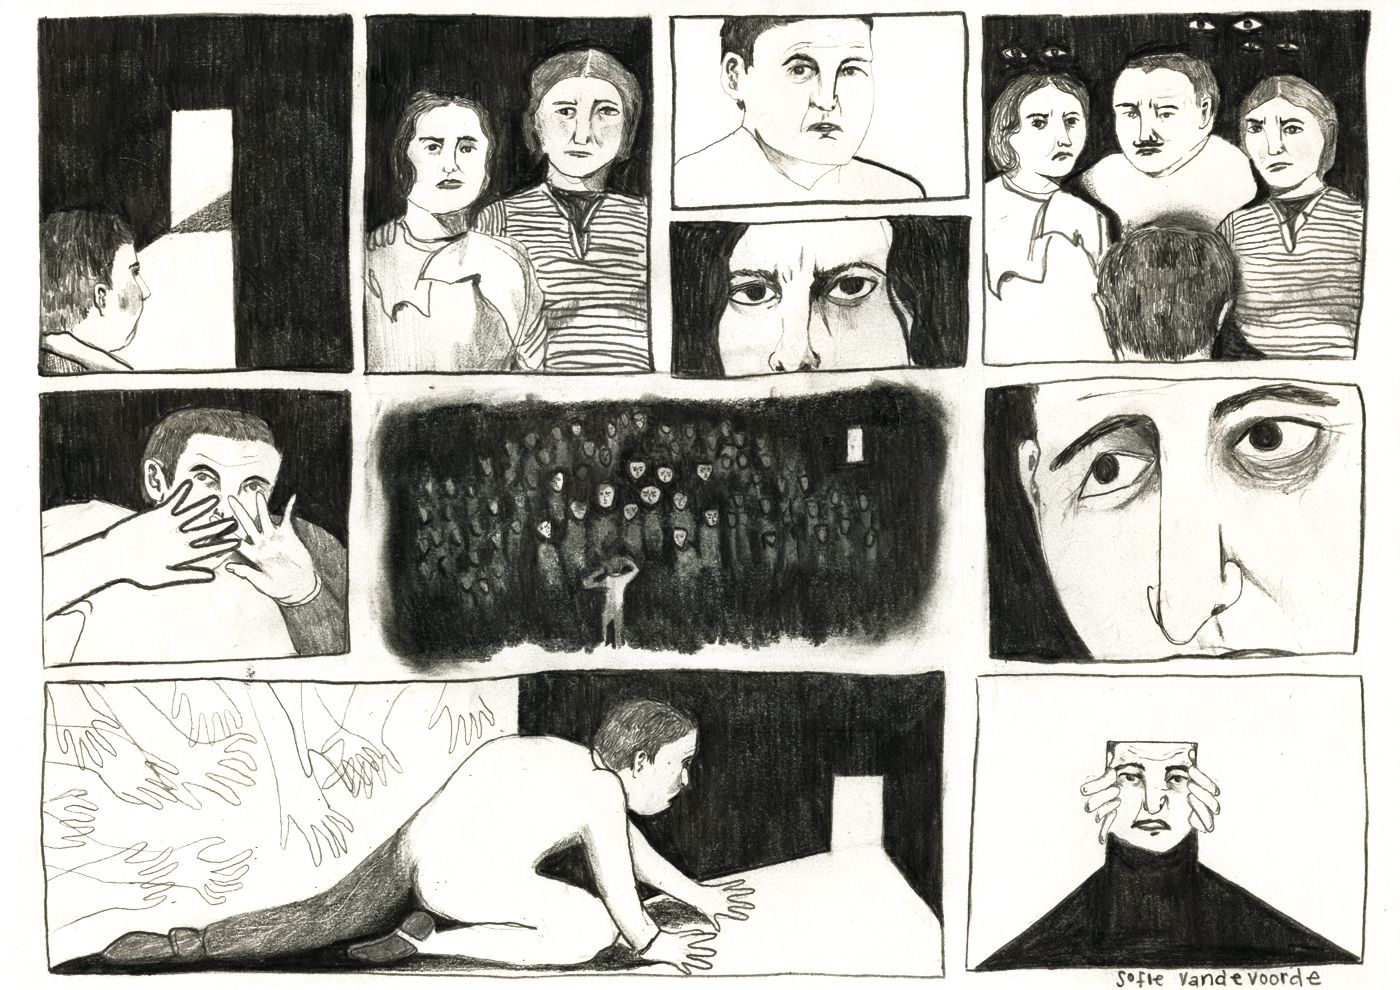 Sofie Vandevoorde